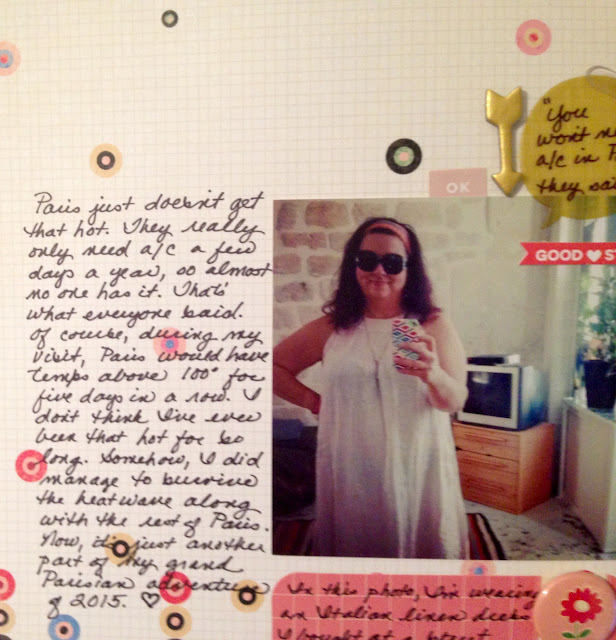 "You
won't
a/c in
they said
OK
GOOD
Paris just doesn't get
that hot. They really
only need a/c a few
days a year, so almost
no one has it. That's
what everyone said.
Of course, during my
visit, Paris would have
temps above 100° for
five days in a row. I
don't think I've ever
been that hot for so
long. Somehow, I did
manage to survive
the heatwave along
with the rest of Paris.
Now, it's just another
part of my grand
Parisian adventure
of 2015. ♡
In this photo, I'm wearing
an Italian linen dress
I bought at a